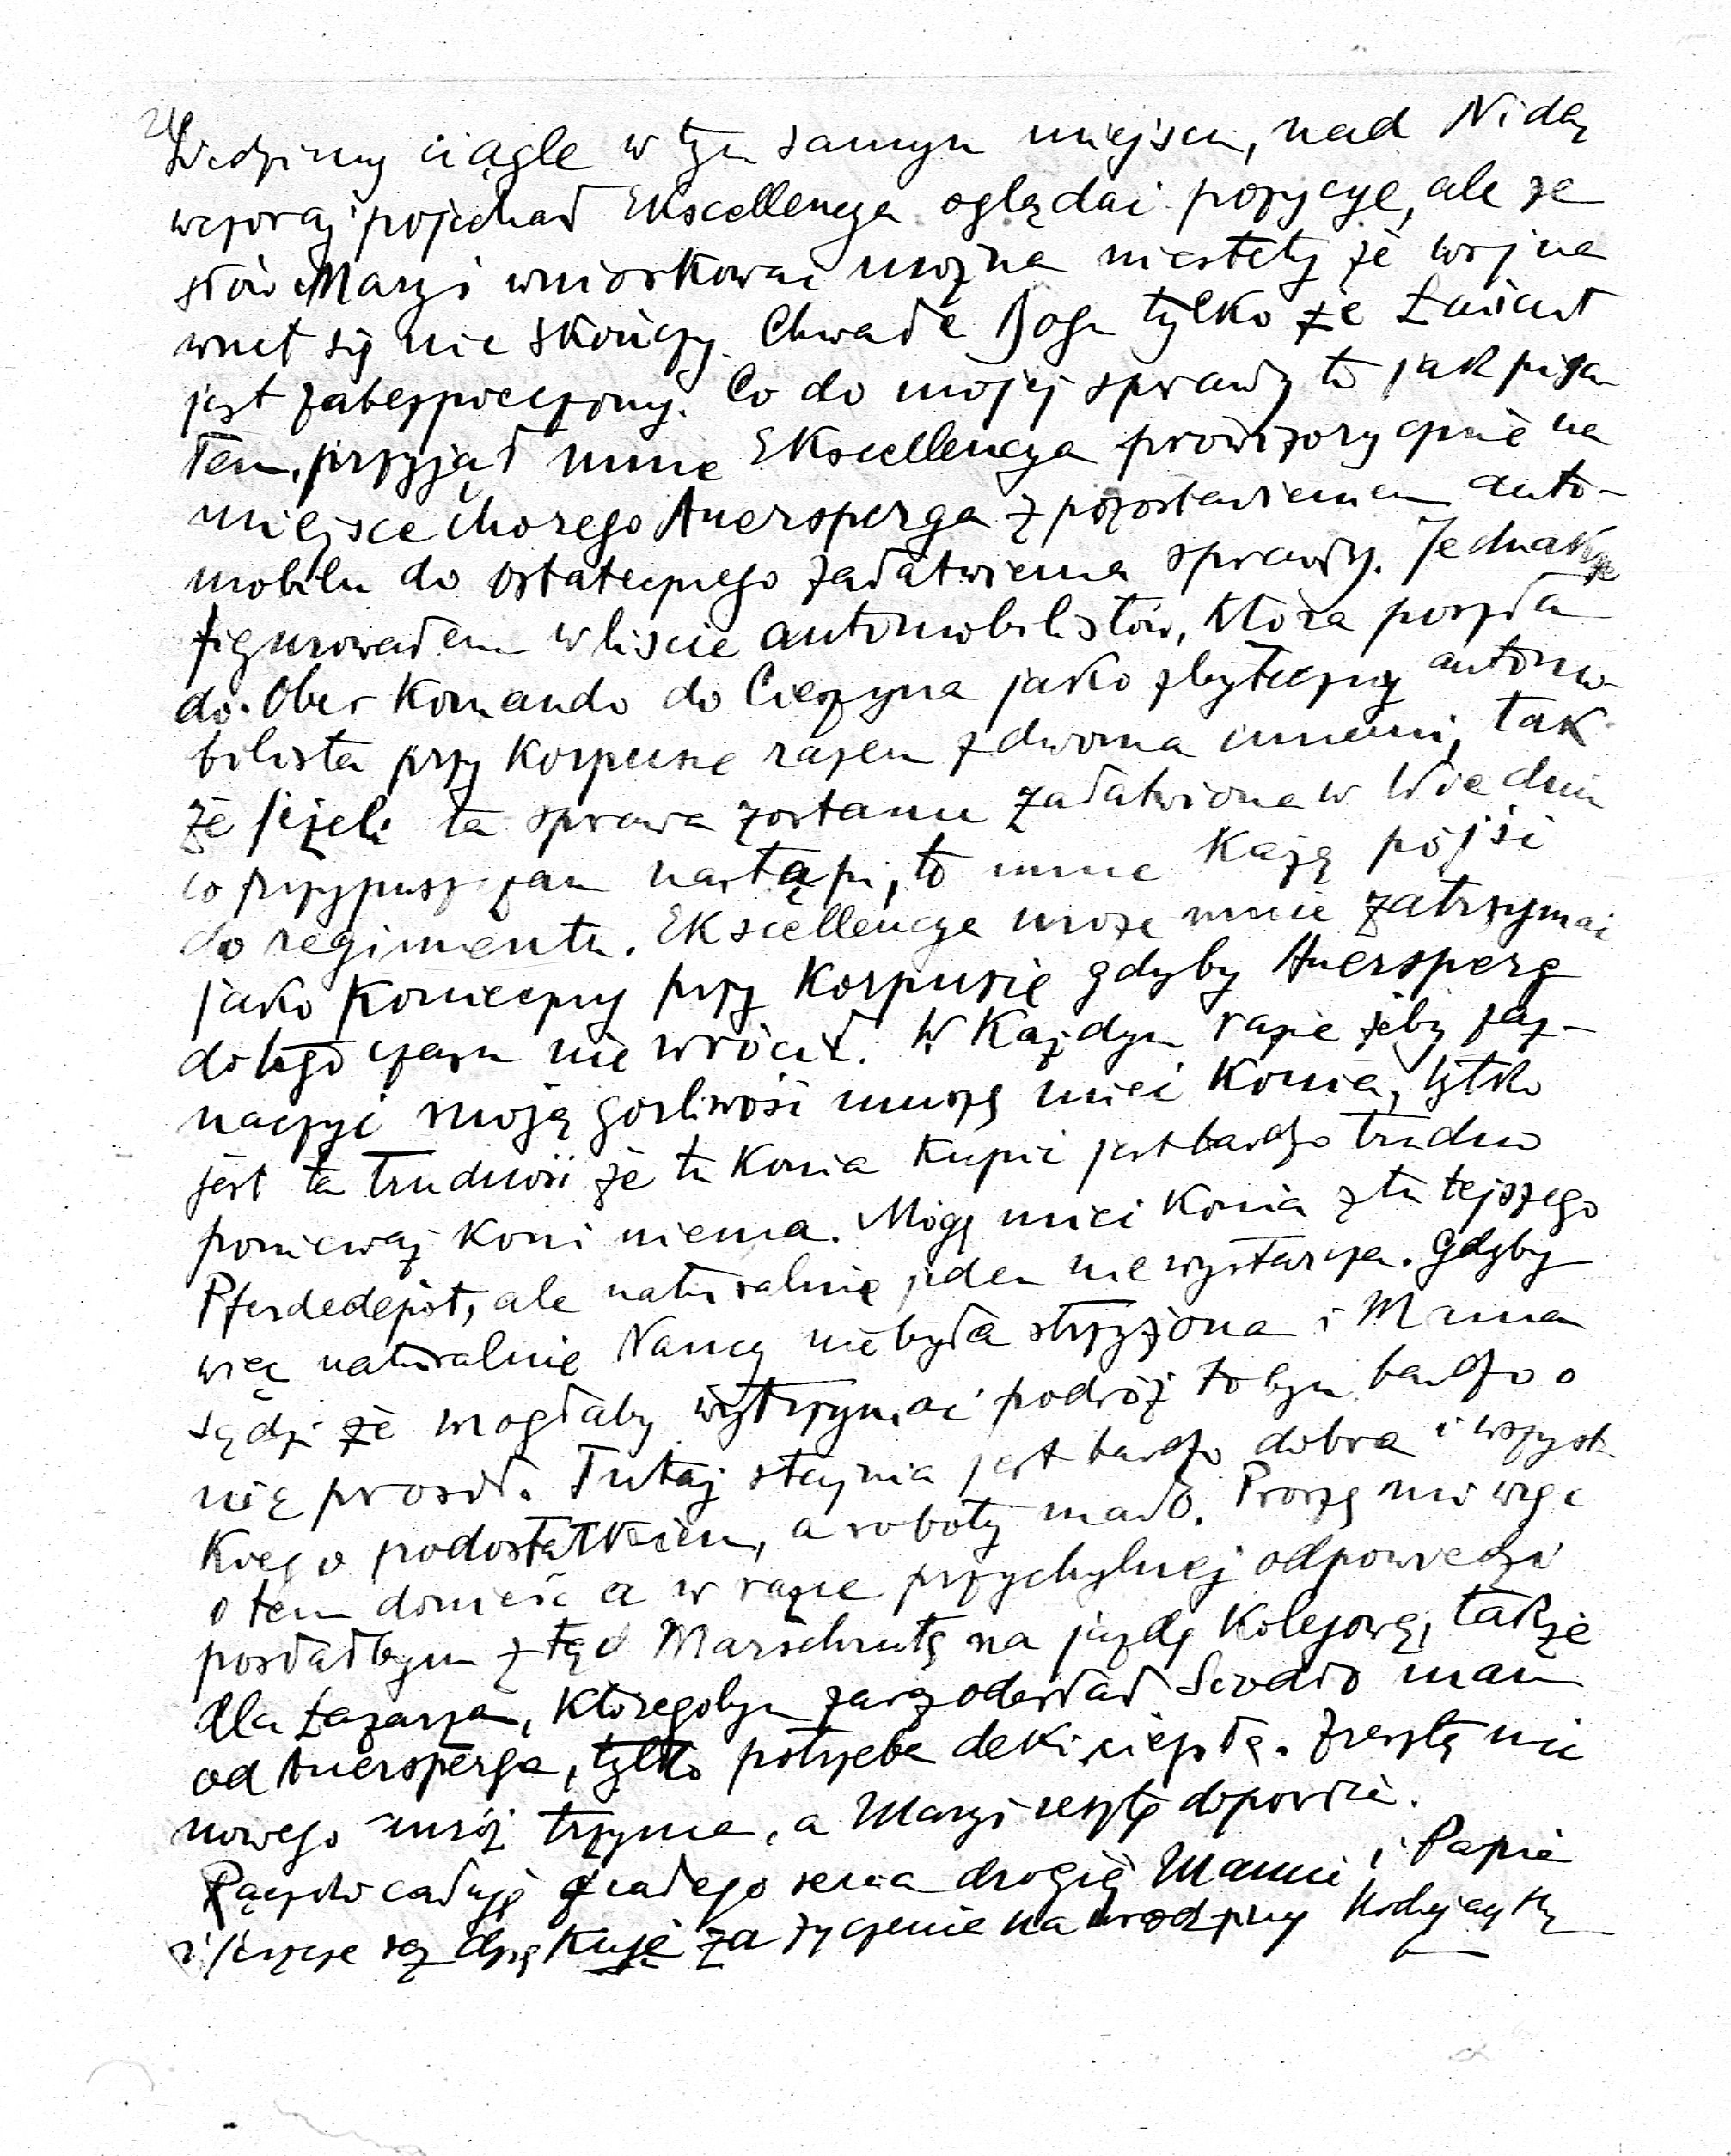 Siedzimy ciągle w tym samym miejscu, nad Nidą
wczoraj pojechał Ekscellencya oglądać pozycye, ale ze
słów Maryi wnioskować można niestety że wojna
wnet się nie skończy. Chwała Bogu tylko że Łańcut
jest zabezpieczony. Co do mojej sprawy to jak pisa
łem, przyjął mnie Ekscellencya prowizorycznie na
miejsce chorego Auersperga z pozostawieniem auto-
mobilu do ostatecznego załatwienia sprawy. Jednakże
figurowałem w liście automobilistów, która poszła
do Ober Komando do Cieszyna jako zbyteczny automo-
bilista przy Korpusie razem z dwoma innemi, tak
że jeżeli ta sprawa zostanie załatwiona w Wiedniu
co przypuszczam nastąpi, to mnie każą pójść
do regimentu. Ekscellencya może mnie zatrzymać
jako konieczny przy Korpusie gdyby Auersperg
do tego czasu nie wrócił. W każdym razie żeby zaz-
naczyć moją gorliwość muszę mieć konia, tylko
jest ta trudność że tu konia kupić jest bardzo trudno
ponieważ koni niema. Mogę mieć konia z tutejszego
Pferdedepôt, ale naturalnie jeden nie wystarcza. Gdyby
więc naturalnie Nancy nie była strzyżona i Mama
sądzi że mogłaby wytrzymać podróż to bym bardzo o
nię prosił. Tutaj stajnia jest bardzo dobra i wszyst
kiego podostatkiem, a roboty mało. Proszę mi więc
o tem donieść a w razie przychylnej odpowiedzi
posłałbym ztąd Marschrutę na jazdę kolejową, także
dla Łazarza, któregobym zaraz odesłał Siodło mam
od Auersperga, tylko potrzeba deki ciepłą. Zresztą nic
nowego mróz trzyma, a Maryi resztę dopowie.
Rączki całuję z całego serca drogiej Mamie i Papie
i jeszcze raz dziękuję za życzenie na urodziny kochający